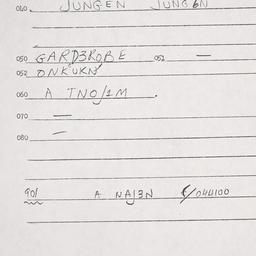 040 JUNGEN JUNGEN
050 GARD3ROBE 051 —
052 ONKUKN
060 A TNO/1M .
070 —
080 —
901 A NAJ3N /044100